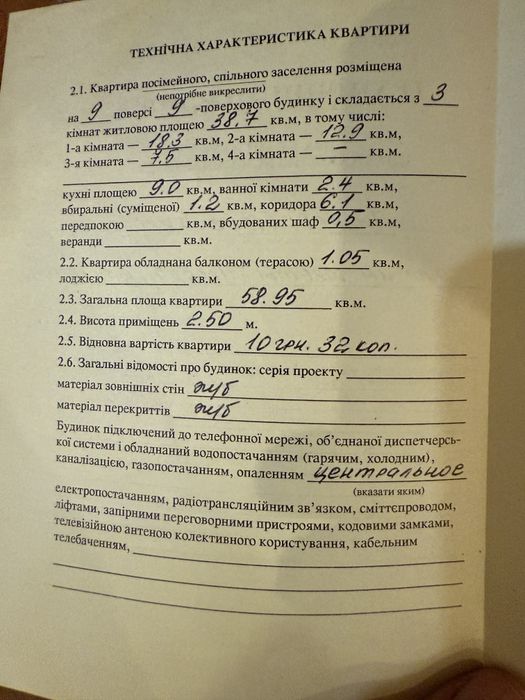 ТЕХНІЧНА ХАРАКТЕРИСТИКА КВАРТИРИ
2.1. Квартира посімейного, спільного заселення розміщена
(непотрібне викреслити)
на 9 поверсі 9 -поверхового будинку і складається з 3
кімнат житловою площею 38,7 кв.м, в тому числі:
1-а кімната — 18,3 кв.м, 2-а кімната — 12,9 кв.м,
3-я кімната — 7,5 кв.м, 4-а кімната — – кв.м.
кухні площею 9.0 кв.м, ванної кімнати 2.4 кв.м,
вбиральні (суміщеної) 1.2 кв.м, коридора 6.1 кв.м,
передпокою кв.м, вбудованих шаф 0,5 кв.м,
веранди кв.м.
2.2. Квартира обладнана балконом (терасою) 1.05 кв.м,
лоджією кв.м.
2.3. Загальна площа квартири 58.95 кв.м.
2.4. Висота приміщень 2.50 м.
2.5. Відновна вартість квартири 10 грн. 32 коп.
2.6. Загальні відомості про будинок: серія проекту
матеріал зовнішніх стін ж/б
матеріал перекриттів ж/б
Будинок підключений до телефонної мережі, об'єднаної диспетчерсь-
кої системи і обладнаний водопостачанням (гарячим, холодним),
каналізацією, газопостачанням, опаленням центральное
(вказати яким)
електропостачанням, радіотрансляційним зв'язком, сміттєпроводом,
ліфтами, запірними переговорними пристроями, кодовими замками,
телевізійною антеною колективного користування, кабельним
телебаченням,